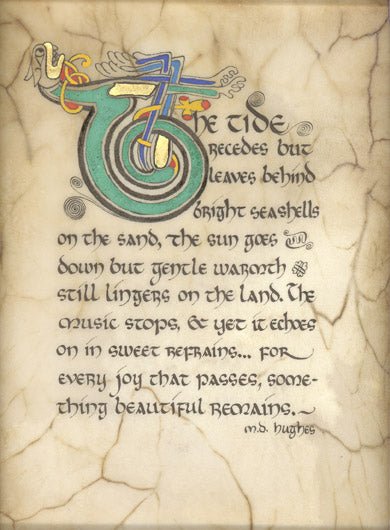 The tide
recedes but
leaves behind
bright seashells
on the sand, the sun goes
down but gentle warmth
still lingers on the land. The
music stops, & yet it echoes
on in sweet refrains... for
every joy that passes, some-
thing beautiful remains.~
M.D. Hughes